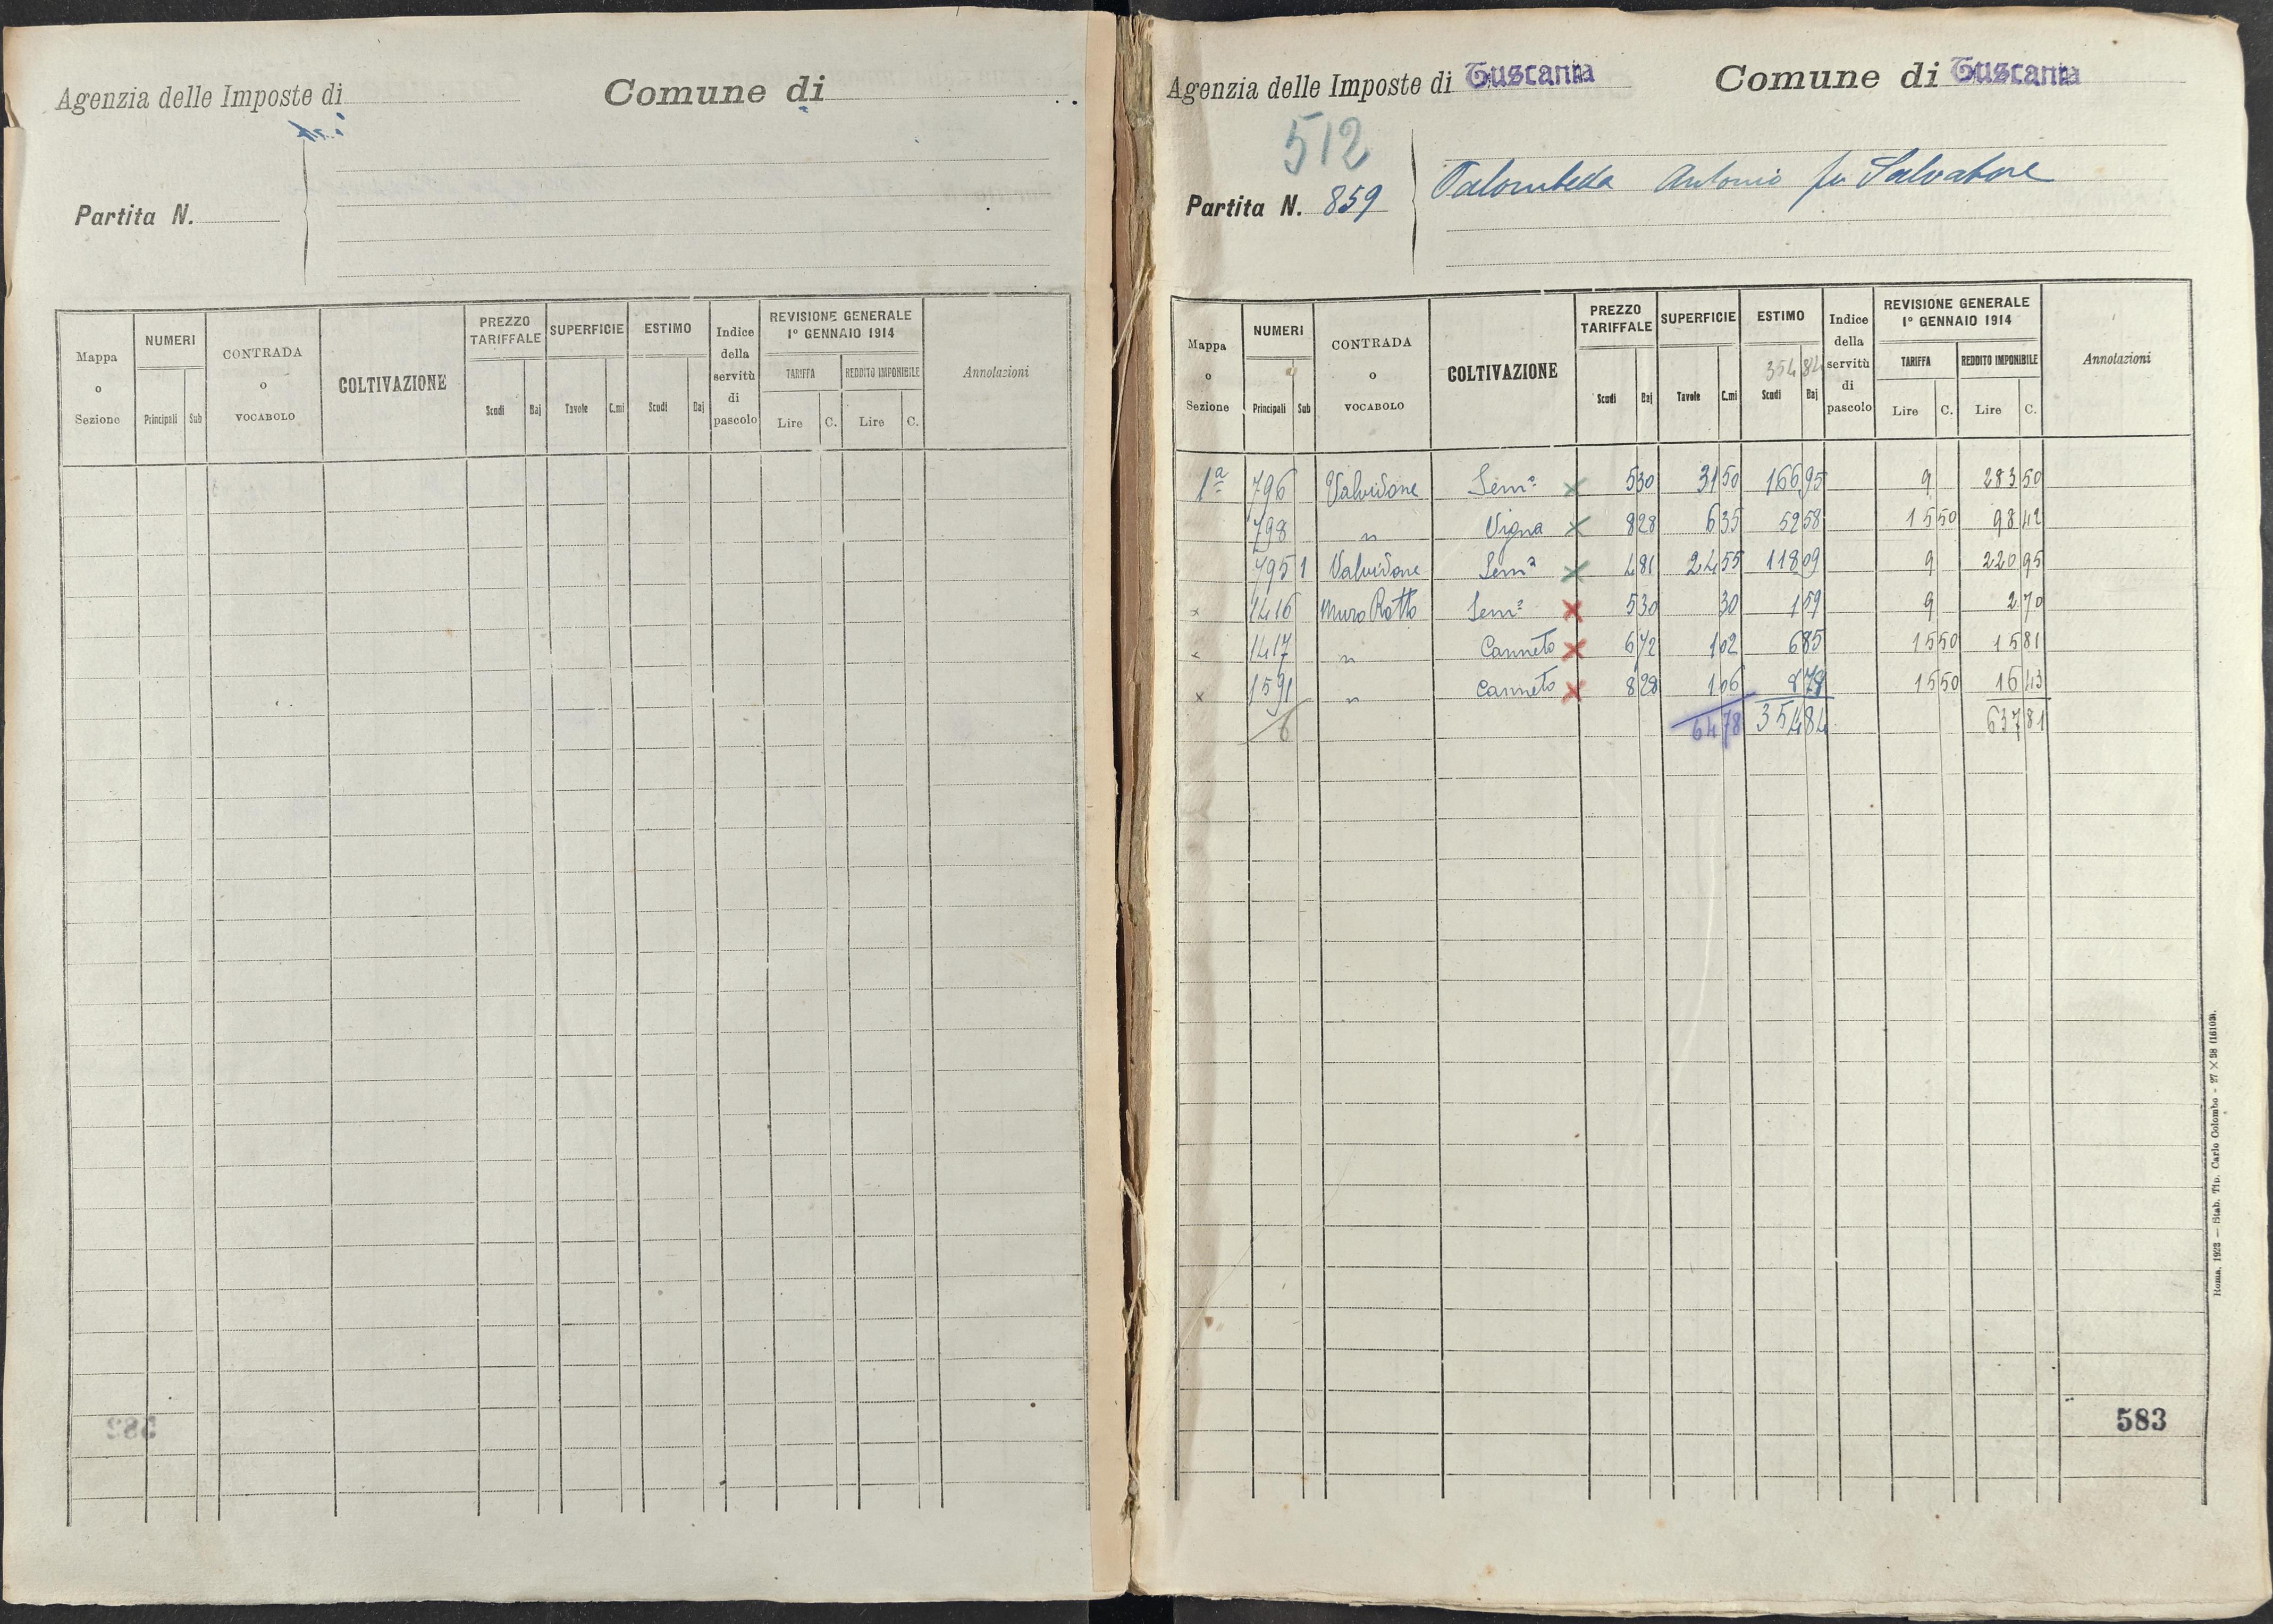 Agenzia delle Imposte di
Comune di
Partita N.
Mappa o Sezione
NUMERI
Principali Sub
CONTRADA o VOCABOLO
COLTIVAZIONE
PREZZO TARIFFALE
Scudi Baj
SUPERFICIE
Tavole C.mi
ESTIMO
Scudi Baj
Indice della servitù di pascolo
REVISIONE GENERALE 1° GENNAIO 1914
TARIFFA
Lire C.
REDDITO IMPONIBILE
Lire C.
Annotazioni
Agenzia delle Imposte di Tuscania
Comune di Tuscania
512
Partita N. 859
Antonio fu Salvatore
Mappa o Sezione
NUMERI
Principali Sub
CONTRADA o VOCABOLO
COLTIVAZIONE
PREZZO TARIFFALE
Scudi Baj
SUPERFICIE
Tavole C.mi
ESTIMO
354 84
Scudi Baj
Indice della servitù di pascolo
REVISIONE GENERALE 1° GENNAIO 1914
TARIFFA
Lire C.
REDDITO IMPONIBILE
Lire C.
Annotazioni
1ª 796 Valvidone Semº x 5 30 31 50 166 95 9 283 50
798 " Vigna x 8 28 6 35 52 58 15 50 98 42
795 1 Valvidone Semº x 4 81 24 55 118 09 9 220 95
x 1416 Muro Rotto Semº x 5 30 30 1 59 9 2 70
x 1417 " Canneto x 6 72 1 02 6 85 15 50 15 81
x 1591 " Canneto x 8 28 1 06 8 78 15 50 16 43
6 64 78 354 84 637 81
583
Roma, 1923 — Stab. Tip. Carlo Colombo - 27 × 38 (16103).